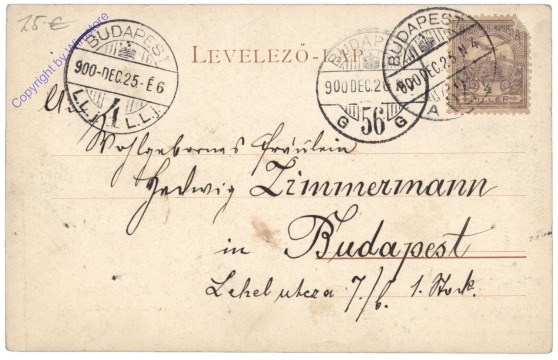 25 €
LEVELEZŐ-LAP
BUDAPEST
900-DEC.25.-É6
I.L. 4 L.L.I.
BUDAPEST
900 DEC.26
G 56 G
BUDAPEST
900 DEC.25.N 4
A
4
Wohlgebornes Fräulein
Hedwig Zimmermann
in
Budapest
Lehel utcza 7./b. 1. Stock.
Copyright by